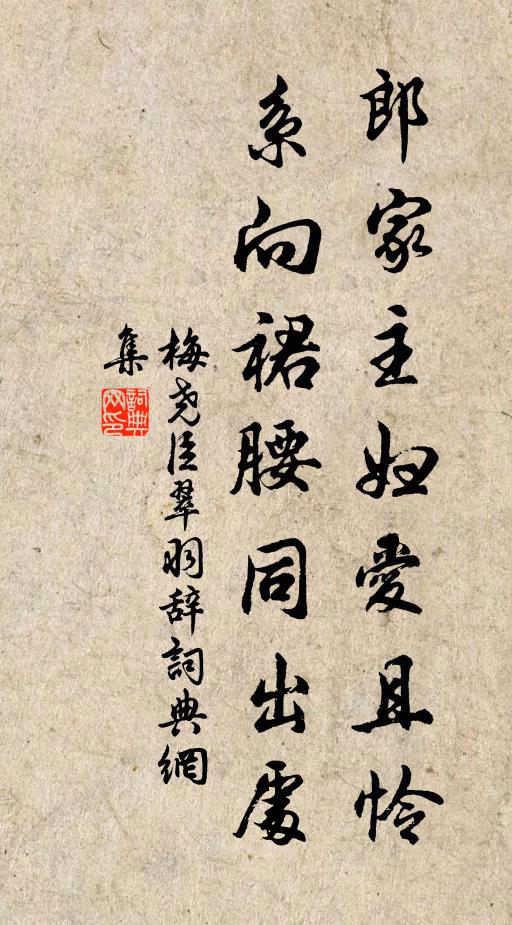 郎家主妇愛且怜
系向裙腰同出處
梅尧臣翠羽辞詞典網
集
詞典網印